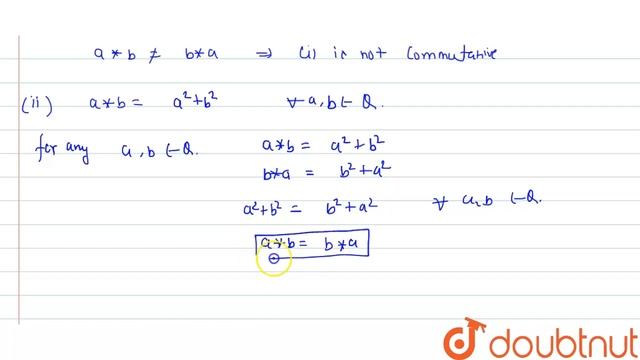 a * b ≠ b * a ⇒ (i) is not commutative
(ii) a * b = a² + b² ∀ a, b ∈ Q.
for any a, b ∈ Q. a * b = a² + b²
b * a = b² + a²
a² + b² = b² + a² ∀ a, b ∈ Q.
a * b = b * a
doubtnut